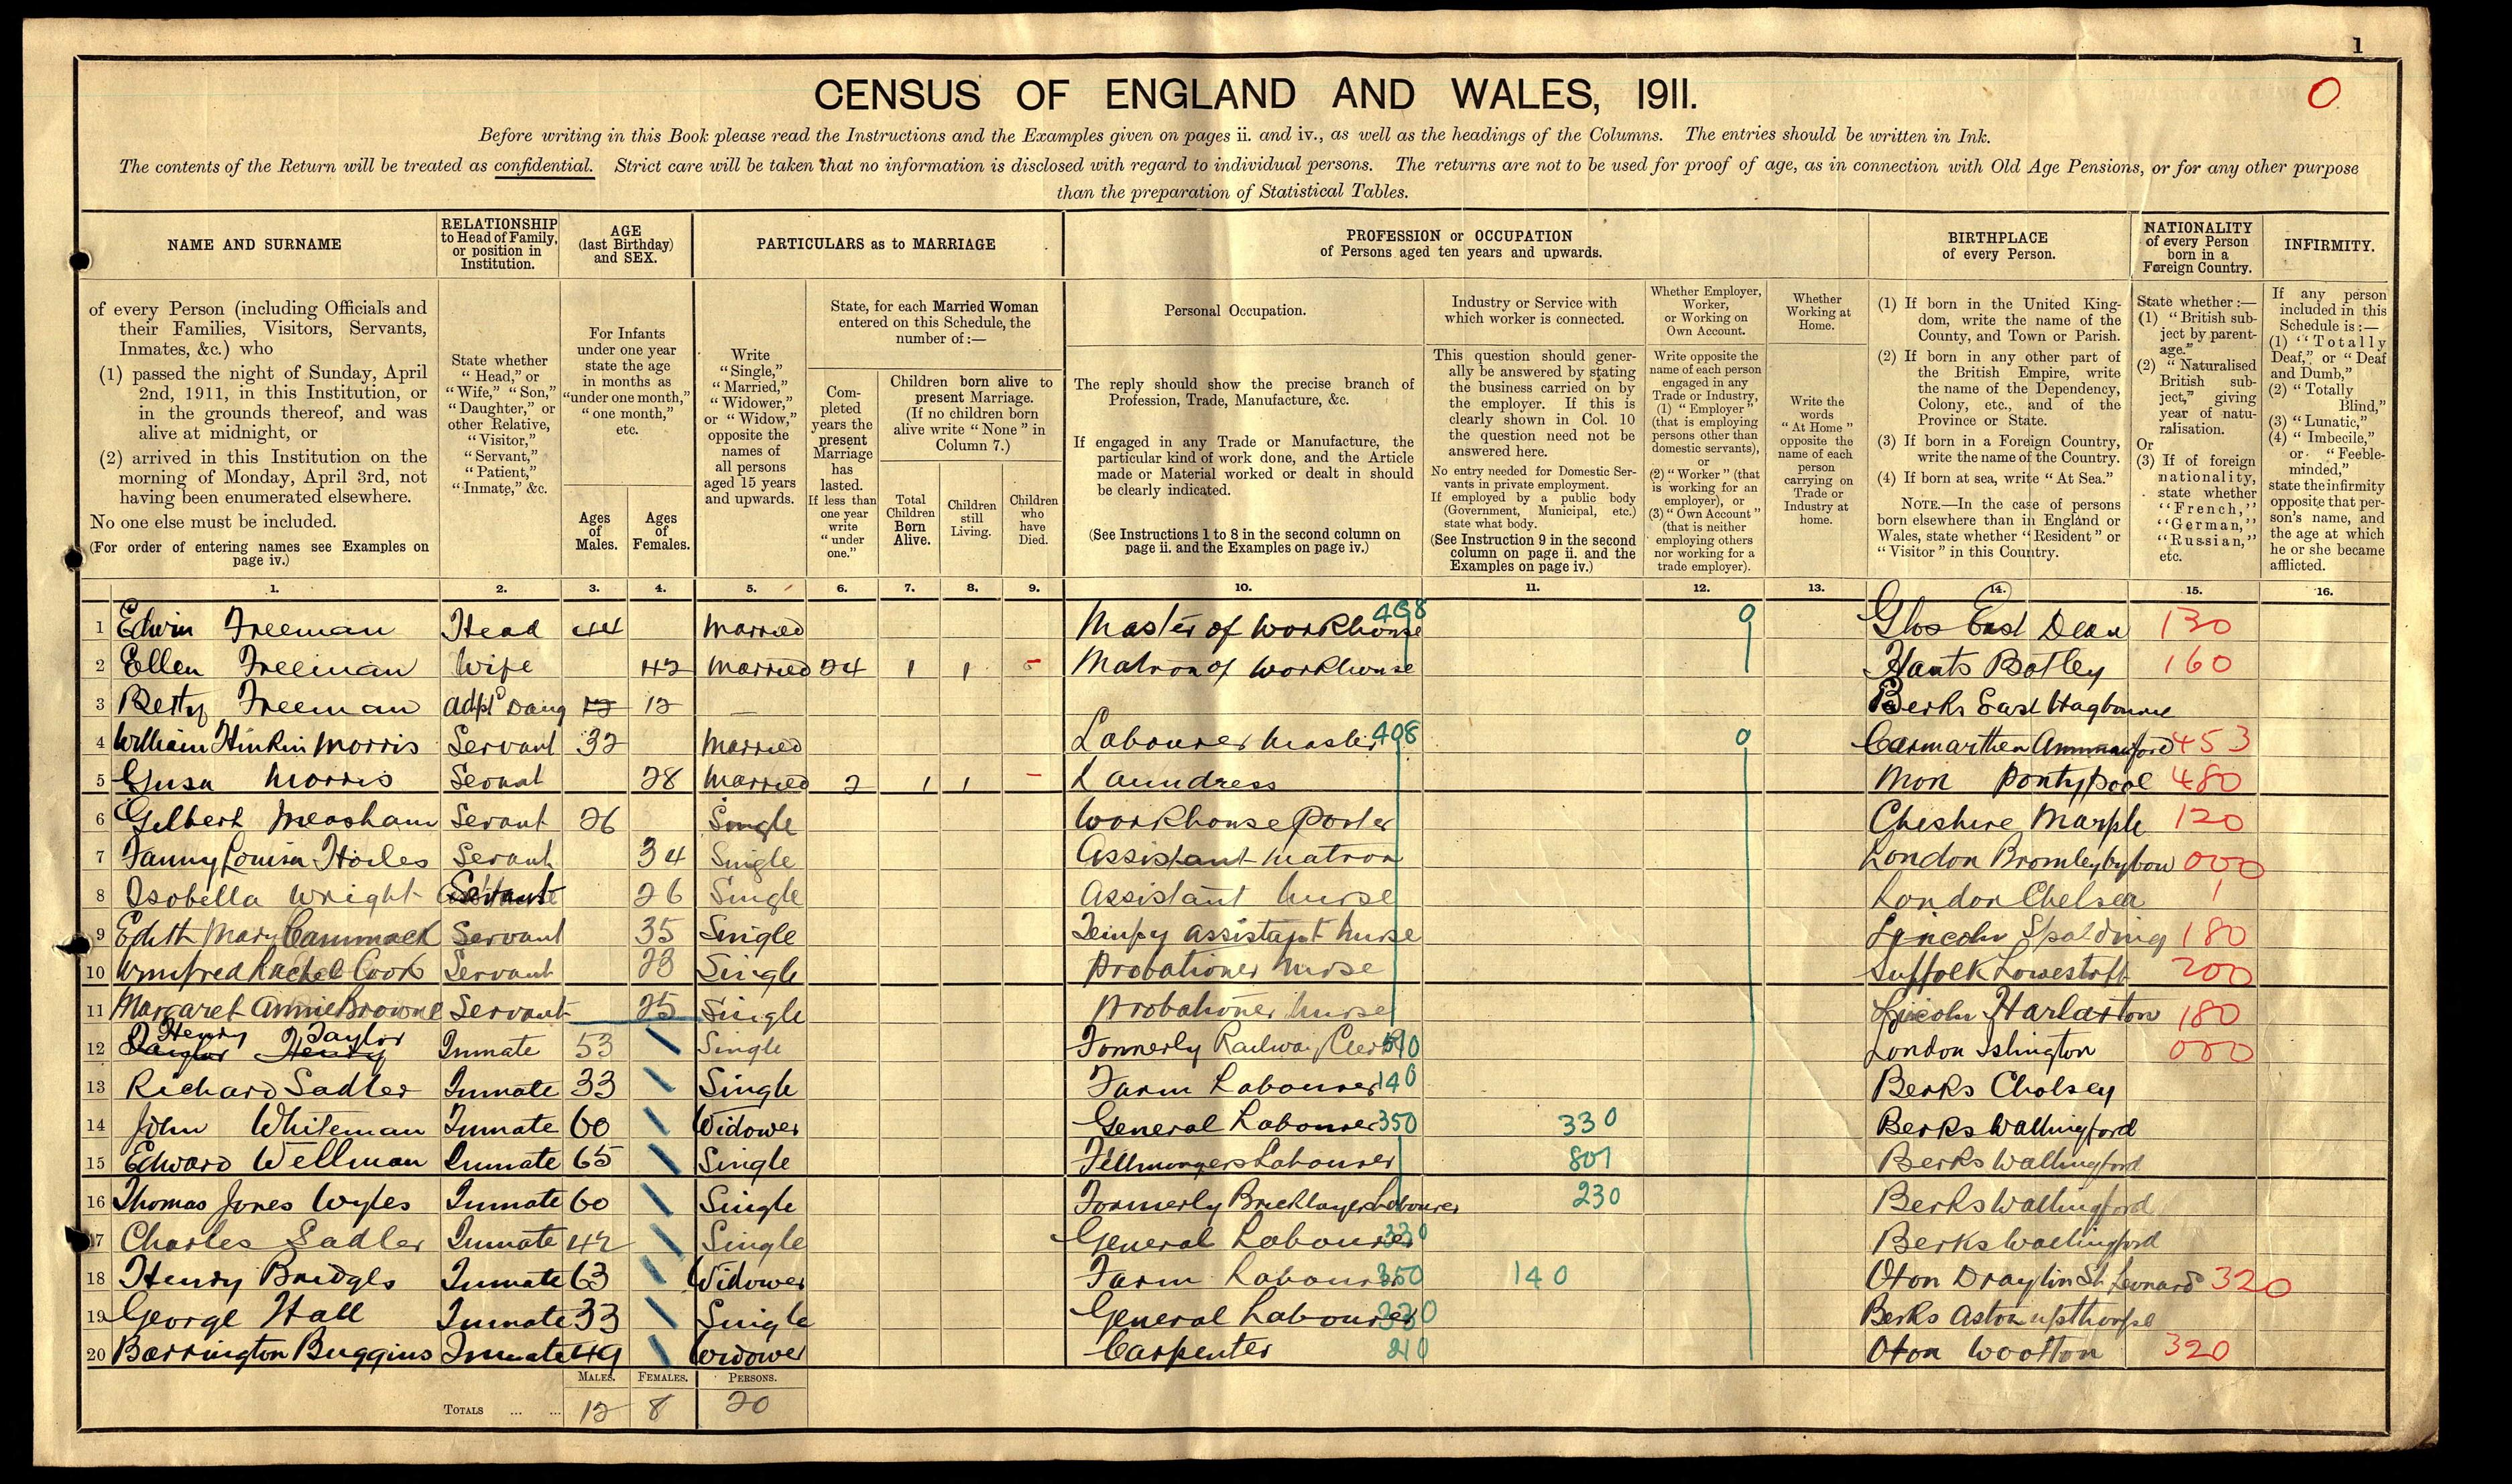 1
CENSUS OF ENGLAND AND WALES, 1911.
0
Before writing in this Book please read the Instructions and the Examples given on pages ii. and iv., as well as the headings of the Columns. The entries should be written in Ink.
The contents of the Return will be treated as confidential. Strict care will be taken that no information is disclosed with regard to individual persons. The returns are not to be used for proof of age, as in connection with Old Age Pensions, or for any other purpose
than the preparation of Statistical Tables.
NAME AND SURNAME
of every Person (including Officials and
their Families, Visitors, Servants,
Inmates, &c.) who
(1) passed the night of Sunday, April
2nd, 1911, in this Institution, or
in the grounds thereof, and was
alive at midnight, or
(2) arrived in this Institution on the
morning of Monday, April 3rd, not
having been enumerated elsewhere.
No one else must be included.
(For order of entering names see Examples on
page iv.)
RELATIONSHIP
to Head of Family,
or position in
Institution.
State whether
"Head," or
"Wife," "Son,"
"Daughter," or
other Relative,
"Visitor,"
"Servant,"
"Patient,"
"Inmate," &c.
AGE
(last Birthday)
and SEX.
For Infants
under one year
state the age
in months as
"under one month,"
"one month,"
etc.
Ages
of
Males.
Ages
of
Females.
PARTICULARS as to MARRIAGE
Write
"Single,"
"Married,"
"Widower,"
or "Widow,"
opposite the
names of
all persons
aged 15 years
and upwards.
State, for each Married Woman
entered on this Schedule, the
number of:—
Com-
pleted
years the
present
Marriage
has
lasted.
If less than
one year
write
"under
one."
Children born alive to
present Marriage.
(If no children born
alive write "None" in
Column 7.)
Total
Children
Born
Alive.
Children
still
Living.
Children
who
have
Died.
PROFESSION or OCCUPATION
of Persons aged ten years and upwards.
Personal Occupation.
The reply should show the precise branch of
Profession, Trade, Manufacture, &c.
If engaged in any Trade or Manufacture, the
particular kind of work done, and the Article
made or Material worked or dealt in should
be clearly indicated.
(See Instructions 1 to 8 in the second column on
page ii. and the Examples on page iv.)
Industry or Service with
which worker is connected.
This question should gener-
ally be answered by stating
the business carried on by
the employer. If this is
clearly shown in Col. 10
the question need not be
answered here.
No entry needed for Domestic Ser-
vants in private employment.
If employed by a public body
(Government, Municipal, etc.)
state what body.
(See Instruction 9 in the second
column on page ii. and the
Examples on page iv.)
Whether Employer,
Worker,
or Working on
Own Account.
Write opposite the
name of each person
engaged in any
Trade or Industry,
(1) "Employer"
(that is employing
persons other than
domestic servants),
or
(2) "Worker" (that
is working for an
employer), or
(3) "Own Account"
(that is neither
employing others
nor working for a
trade employer).
Whether
Working at
Home.
Write the
words
"At Home"
opposite the
name of each
person
carrying on
Trade or
Industry at
home.
BIRTHPLACE
of every Person.
(1) If born in the United King-
dom, write the name of the
County, and Town or Parish.
(2) If born in any other part of
the British Empire, write
the name of the Dependency,
Colony, etc., and of the
Province or State.
(3) If born in a Foreign Country,
write the name of the Country.
(4) If born at sea, write "At Sea."
NOTE.—In the case of persons
born elsewhere than in England or
Wales, state whether "Resident" or
"Visitor" in this Country.
NATIONALITY
of every Person
born in a
Foreign Country.
State whether:—
(1) "British sub-
ject by parent-
age."
(2) "Naturalised
British sub-
ject," giving
year of natu-
ralisation.
Or
(3) If of foreign
nationality,
state whether
"French,"
"German,"
"Russian,"
etc.
INFIRMITY.
If any person
included in this
Schedule is:—
(1) "Totally
Deaf," or "Deaf
and Dumb,"
(2) "Totally
Blind,"
(3) "Lunatic,"
(4) "Imbecile,"
or "Feeble-
minded,"
state the infirmity
opposite that per-
son's name, and
the age at which
he or she became
afflicted.
1. 2. 3. 4. 5. 6. 7. 8. 9. 10. 11. 12. 13. 14. 15. 16.
1 Edwin Freeman Head 44 Married Master of Workhouse 408 0 Glos East Dean 130
2 Ellen Freeman Wife 42 Married 24 1 1 - Matron of Workhouse Hants Botley 160
3 Betty Freeman Adptd Daug 12 12 — Berks East Hagbourne
4 William Hinkin Morris Servant 32 Married Labour Master 408 0 Carmarthen Ammanford 453
5 Morris Servant 28 Married 2 1 1 - Laundress Mon Pontypool 480
6 Gilbert Measham Servant 26 Single Workhouse Porter Cheshire Marple 120
7 Fanny Louisa Servant 34 Single Assistant Matron London Bromleybybow 000
8 Isobella Wright Servant 26 Single Assistant Nurse London Chelsea
9 Edith Mary Cammack Servant 35 Single Tempy Assistant Nurse Lincoln Spalding 180
10 Winifred Rachel Cook Servant 23 Single Probationer Nurse Suffolk Lowestoft 200
11 Margaret Annie Browne Servant 25 Single Probationer Nurse Lincoln Harlaxton 180
12 Taylor Henry Henry Taylor Inmate 53 Single Formerly Railway Clerk London Islington 000
13 Richard Sadler Inmate 33 Single Farm Labourer 140 Berks Cholsey
14 John Whiteman Inmate 60 Widower General Labourer 350 330 Berks Wallingford
15 Edward Wellman Inmate 65 Single Fellmongers Labourer 801 Berks Wallingford
16 Thomas Jones Wyles Inmate 60 Single Formerly Bricklayers Labourer 230 Berks Wallingford
17 Charles Sadler Inmate 42 Single General Labourer 330 Berks Wallingford
18 Henry Bridges Inmate 63 Widower Farm Labourer 350 140 Oxon Drayton St Leonard 320
19 George Hall Inmate 33 Single General Labourer 330 Berks Aston Upsthorpe
20 Barrington Buggins Inmate 49 Widower Carpenter 210 Oxon Wootton 320
MALES. FEMALES. PERSONS.
TOTALS ... ... 12 8 20